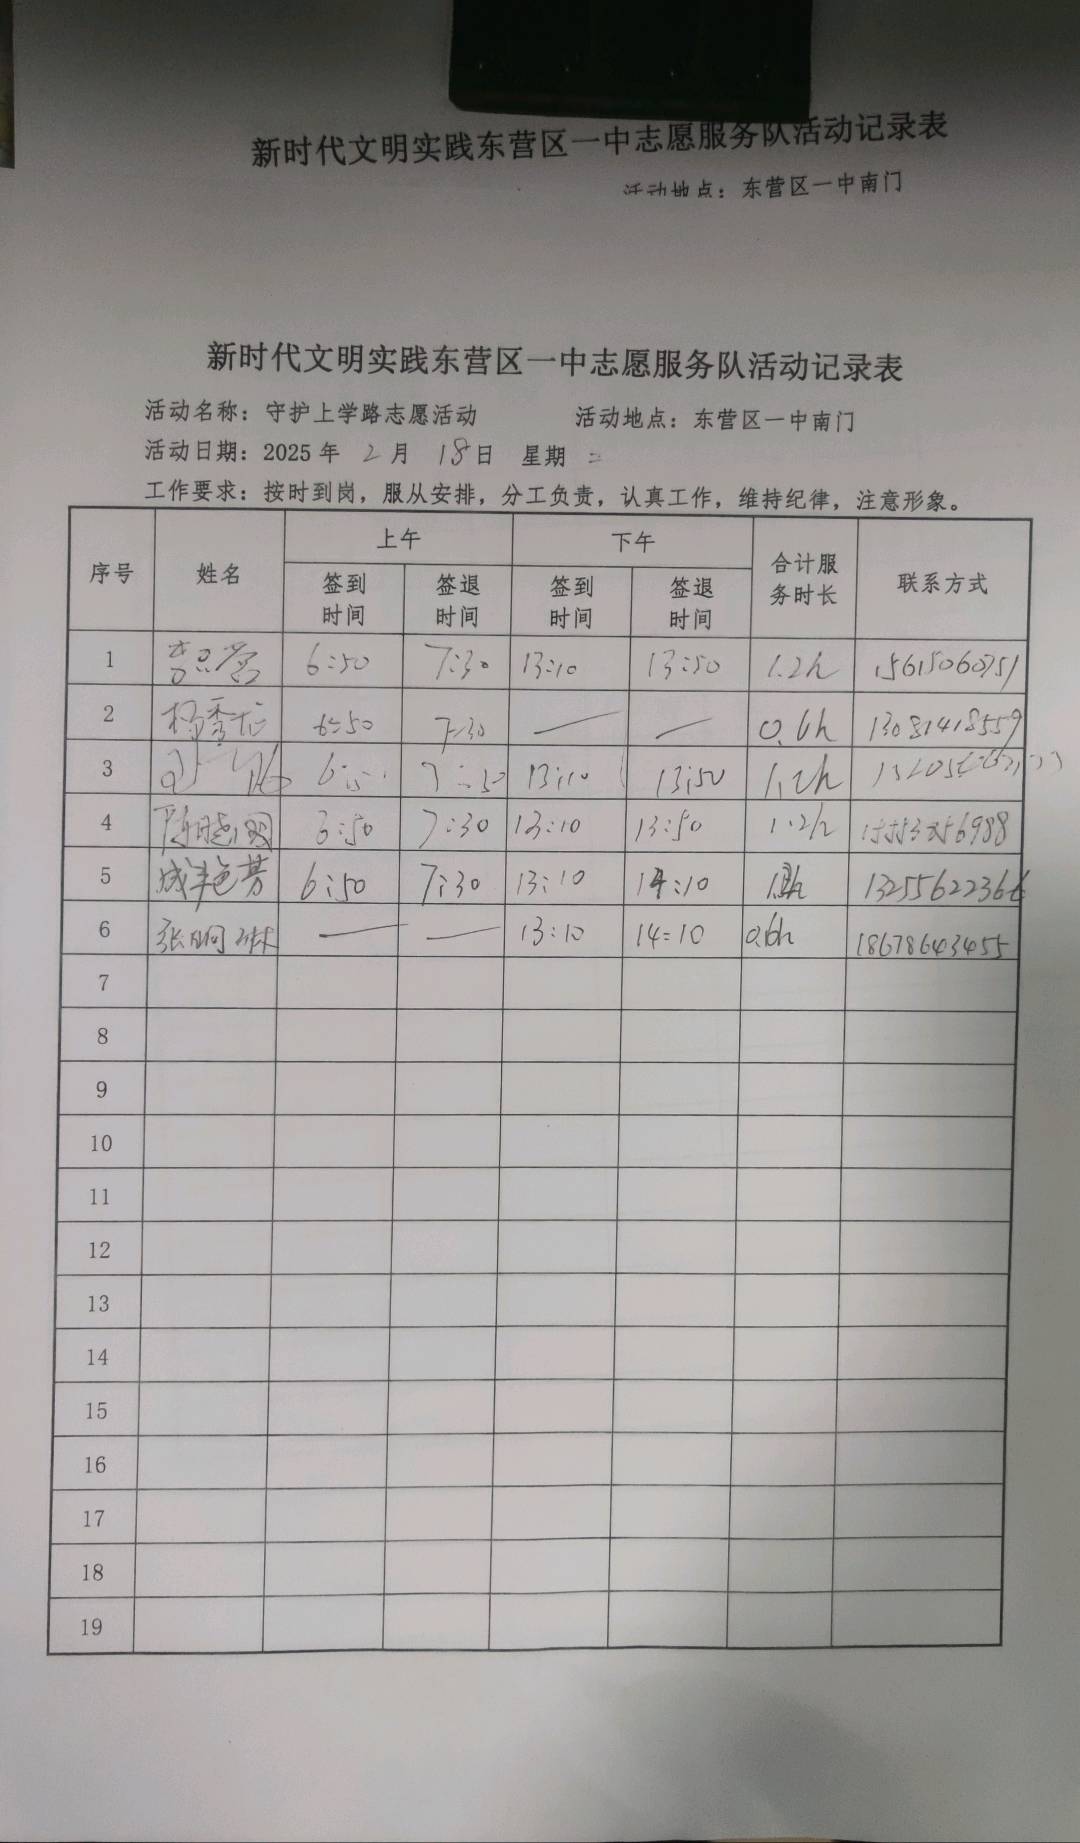 新时代文明实践东营区一中志愿服务队活动记录表
活动地点：东营区一中南门
新时代文明实践东营区一中志愿服务队活动记录表
活动名称：守护上学路志愿活动 活动地点：东营区一中南门
活动日期：2025年 2月 18日 星期 二
工作要求：按时到岗，服从安排，分工负责，认真工作，维持纪律，注意形象。
序号 姓名 上午 下午 合计服务时长 联系方式
签到时间 签退时间 签到时间 签退时间
1 6:50 7:30 13:10 13:50 1.2h 15615060751
2 6:50 7:30 — — 0.6h 13081418559
3 13:10 13:50 1.2h
4 6:50 7:30 13:10 13:50 1.2h
5 成艳芳 6:50 7:30 13:10 14:10 13255622366
6 张明琳 — — 13:10 14:10 0.6h 18678643455
7
8
9
10
11
12
13
14
15
16
17
18
19